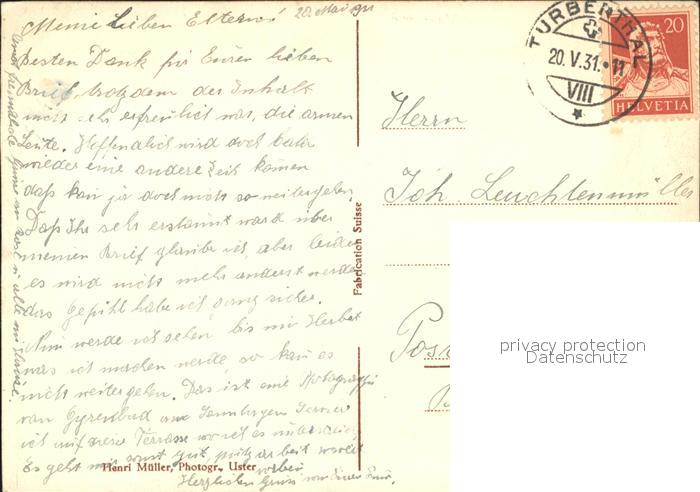 Meine Lieben Eltern
20. Mai 1931
Besten Dank für Euren lieben
Brief, trotzdem der Inhalt
nicht sehr erfreulich war, die armen
Leute. Hoffendlich wird doch bald
wieder eine andere Zeit kommen
daß kan ja doch nicht so weitergehen.
Daß Ihr sehr erstaunt ward über
meinen Brief glaube ich, aber leider
es wird nicht mehr anderst werden
das Gefühl habe ich ganz sicher.
Nun werde ich sehen bis mir Herbst
was ich machen werde, so kan es
nicht weitergehen. Das ist eine Photografie
von Gyrenbad
ich auf der Terrasse wo ich es
Es geht mir sonst gut,
Herzlichen Gruss von Eurer
TURBENTHAL
20.V.31.•11
VIII
20
HELVETIA
Herrn
Joh. Leuchtenmüller
Fabrication Suisse
privacy protection
Datenschutz
Henri Müller, Photogr., Uster